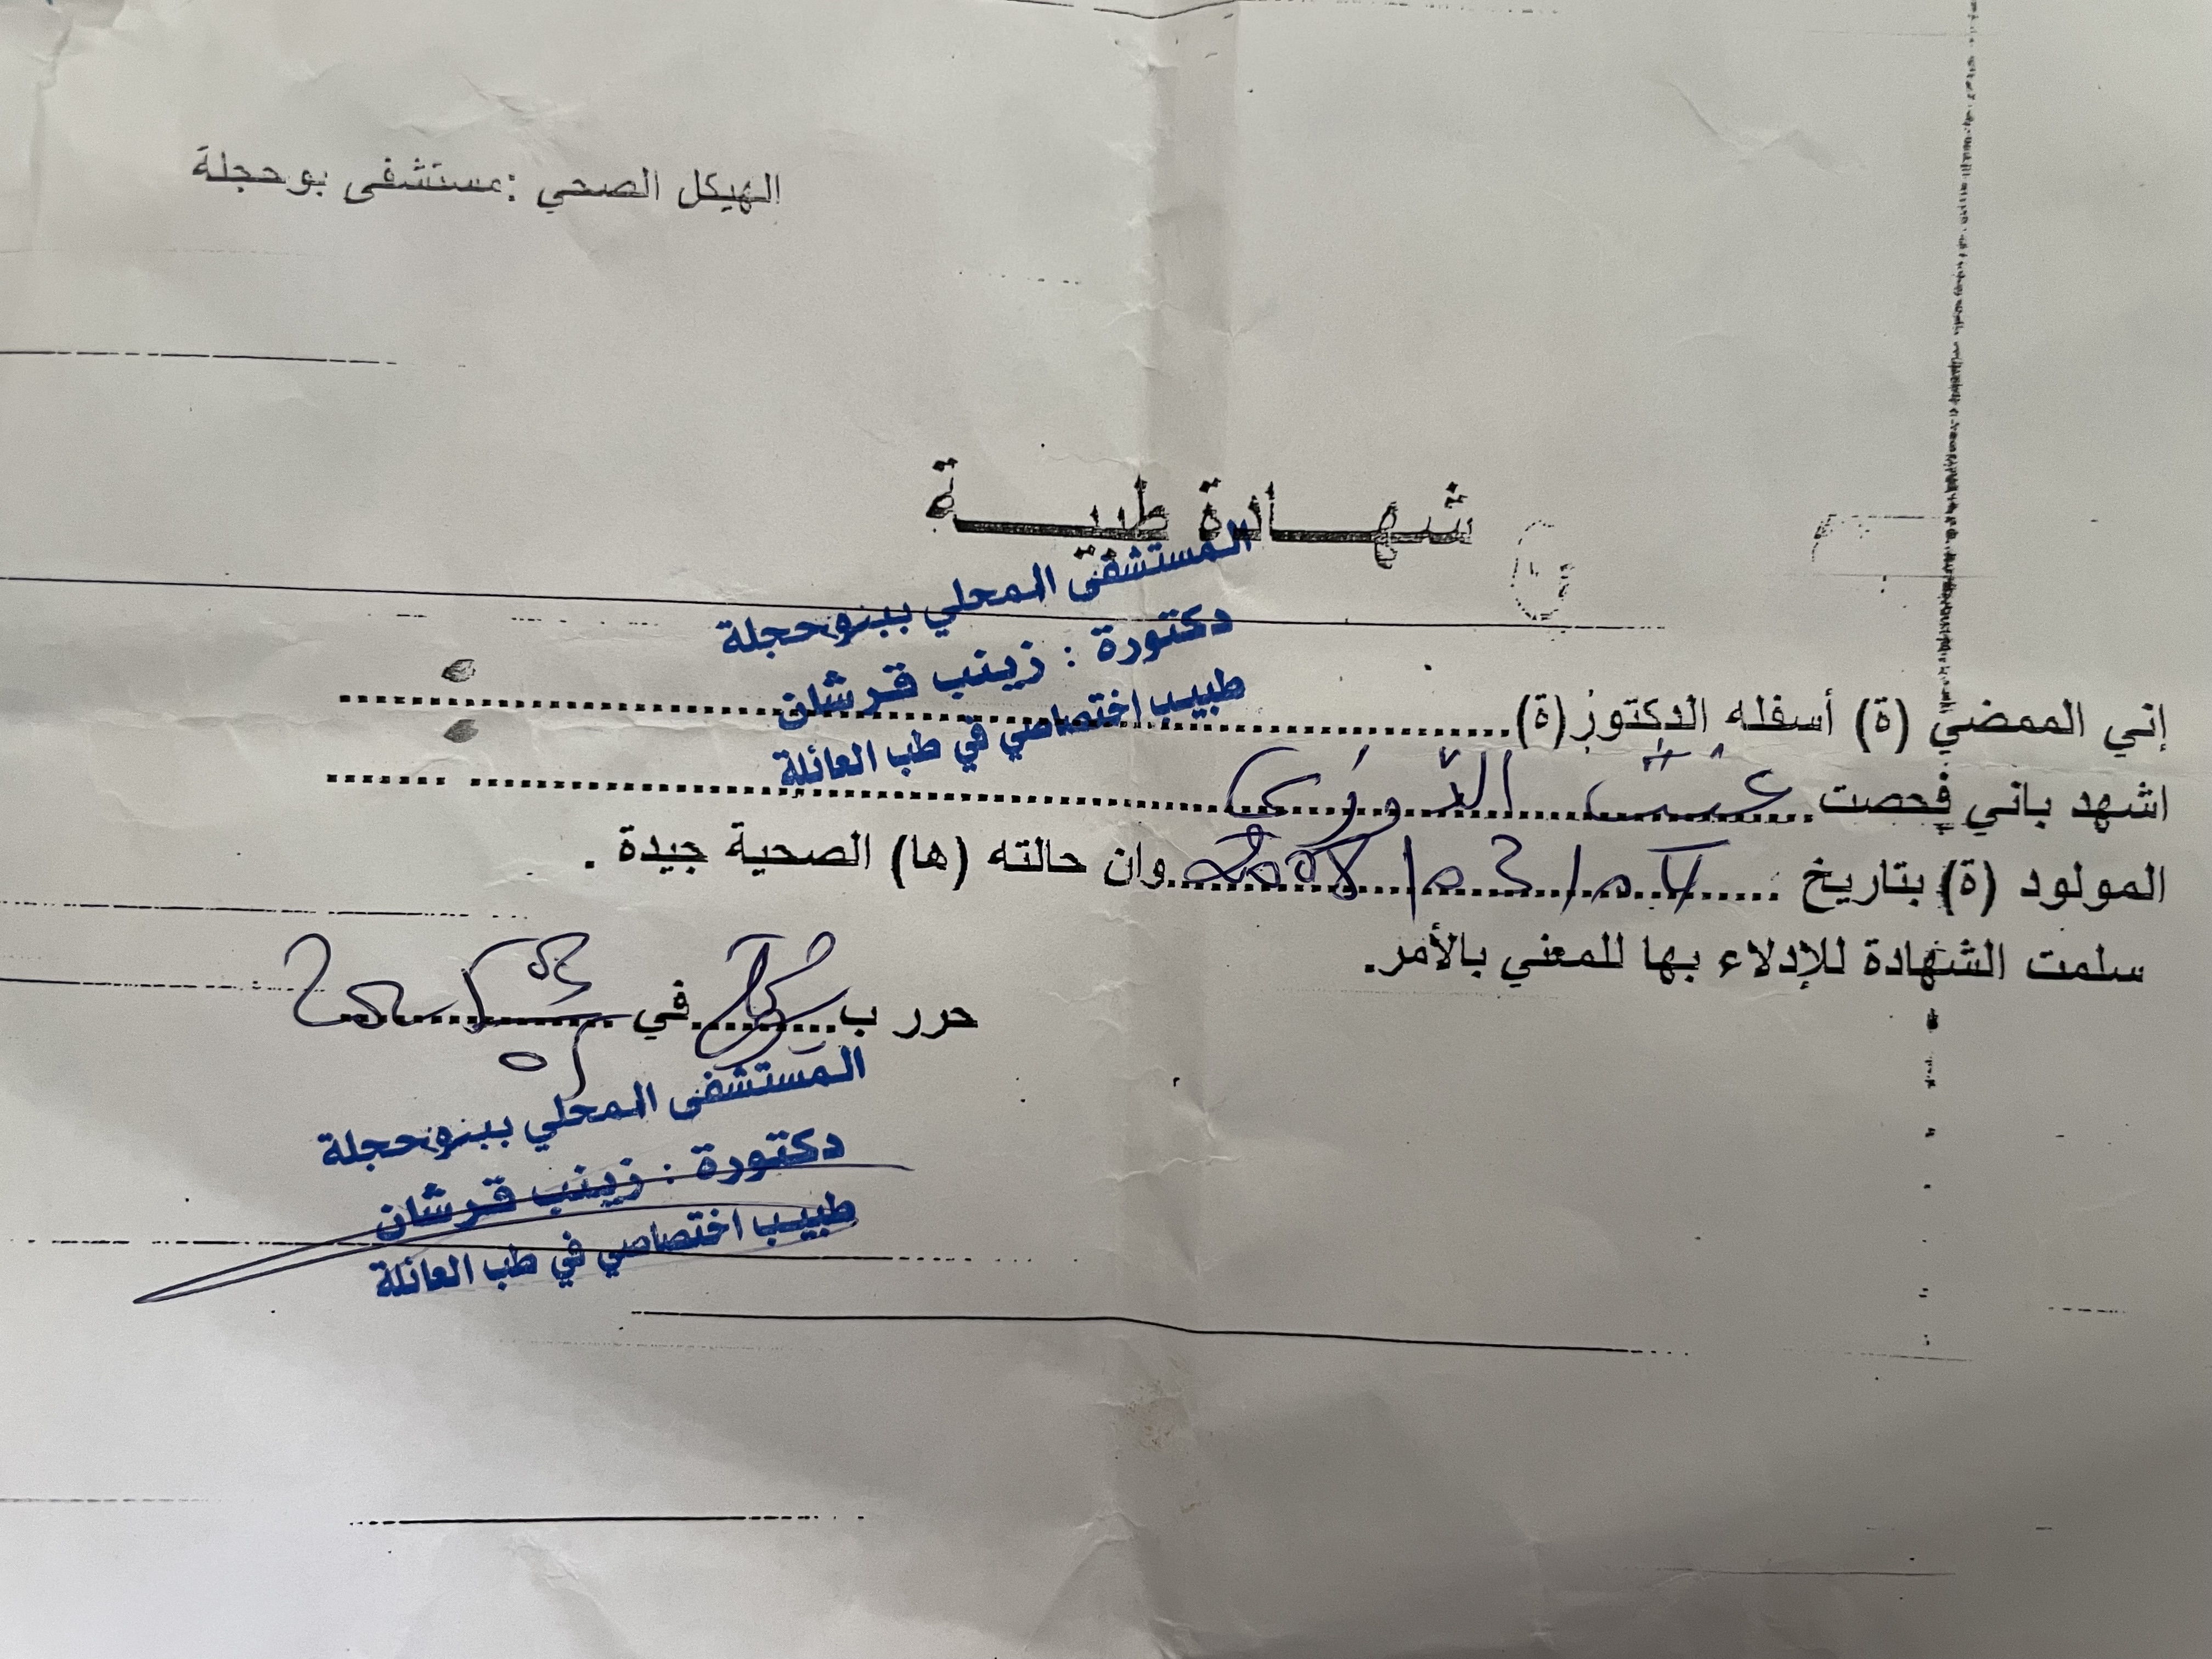 الهيكل الصحي : مستشفى بوحجلة
شهـــادة طبيـــة
المستشفى المحلي ببوحجلة
دكتورة : زينب قرشان
طبيب اختصاصي في طب العائلة
إني الممضي (ة) أسفله الدكتور (ة)........................
اشهد باني فحصت........................
المولود (ة) بتاريخ ............2008 وان حالته (ها) الصحية جيدة .
سلمت الشهادة للإدلاء بها للمعني بالأمر.
حرر ب.......... في ............
المستشفى المحلي ببوحجلة
دكتورة : زينب قرشان
طبيب اختصاصي في طب العائلة